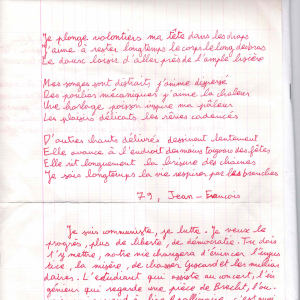 Je plonge volontiers ma tête dans les draps
J'aime à rester longtemps le corps le long des bras
Le doux loisir d'aller près de l'ample lisière
Mes songes sont distraits j'anime dispersé
Des poulies mécaniques j'aime la chaleur
Une horloge poisson inspire ma pâleur
Les plaisirs délicats les rênes cadencés
D'autres hauts délivrés dessinent lentement
Elle avance à l'endroit demain toujours des fêtes
Elle rit longuement la brisure des chaînes
Je serai longtemps la vie respirer par les branches
79, Jean-François
Je suis communiste, je lutte. Je veux le
progrès, plus de liberté, de démocratie. Tu dois
t'y mettre, notre vie changera d'évincer l'injus
tice, la misère, de chasser Giscard et les milliar
daires. L'étudiant qui assiste au concert, l'in
génieur qui regarde une pièce de Brecht, l'ou